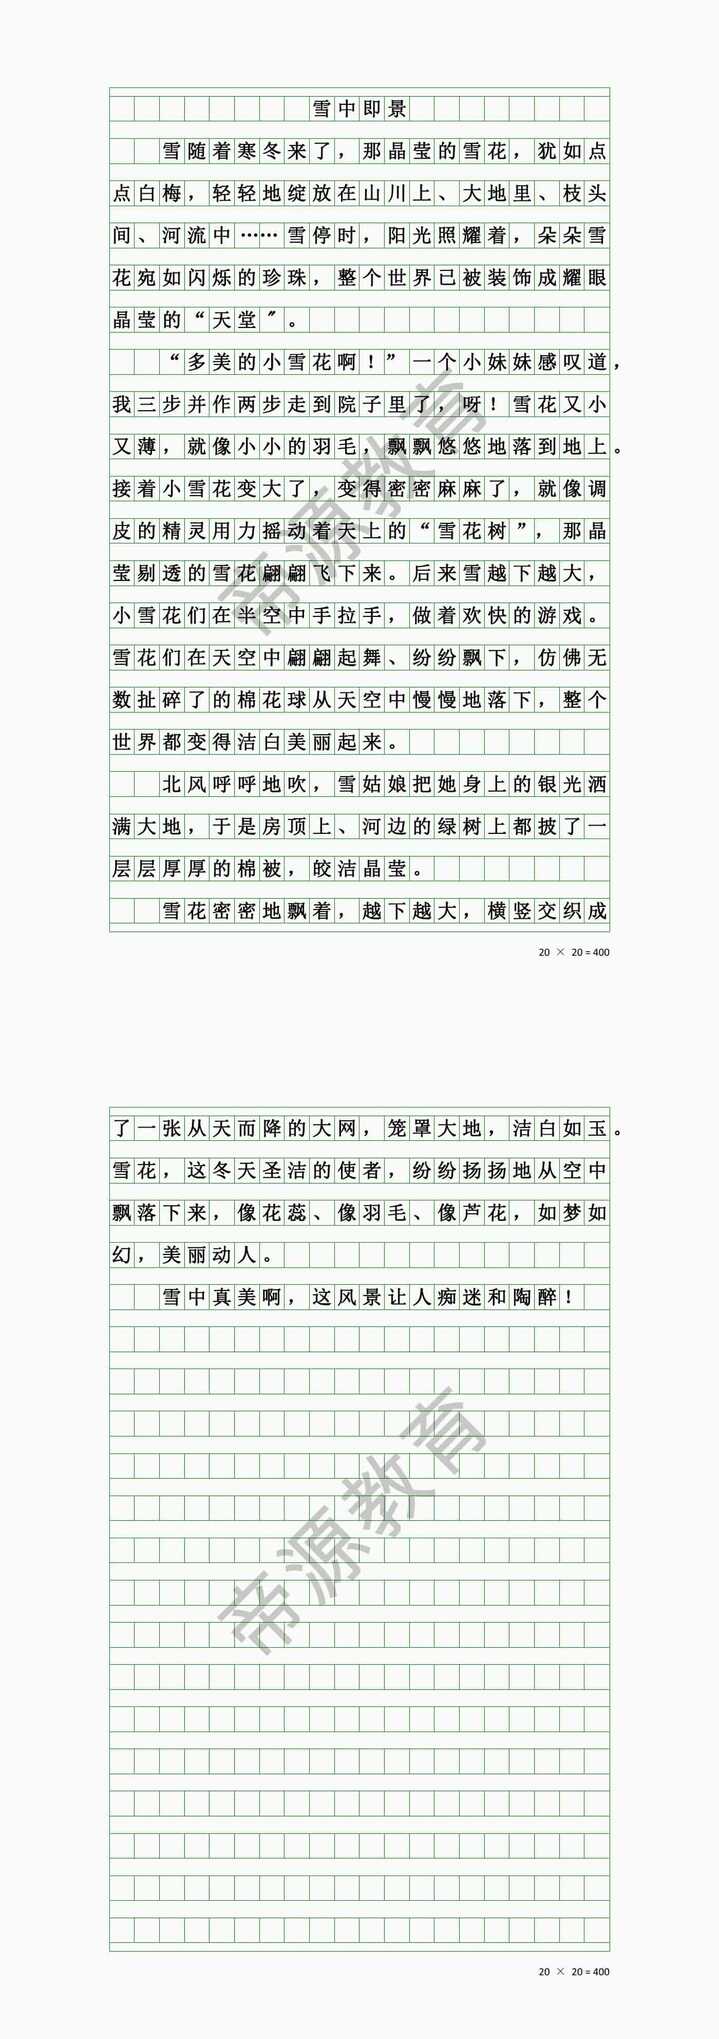 雪中即景
雪随着寒冬来了，那晶莹的雪花，犹如点
点白梅，轻轻地绽放在山川上、大地里、枝头
间、河流中……雪停时，阳光照耀着，朵朵雪
花宛如闪烁的珍珠，整个世界已被装饰成耀眼
晶莹的“天堂〞。
“多美的小雪花啊！”一个小妹妹感叹道，
我三步并作两步走到院子里了，呀！雪花又小
又薄，就像小小的羽毛，飘飘悠悠地落到地上。
接着小雪花变大了，变得密密麻麻了，就像调
皮的精灵用力摇动着天上的“雪花树”，那晶
莹剔透的雪花翩翩飞下来。后来雪越下越大，
小雪花们在半空中手拉手，做着欢快的游戏。
雪花们在天空中翩翩起舞、纷纷飘下，仿佛无
数扯碎了的棉花球从天空中慢慢地落下，整个
世界都变得洁白美丽起来。
北风呼呼地吹，雪姑娘把她身上的银光洒
满大地，于是房顶上、河边的绿树上都披了一
层层厚厚的棉被，皎洁晶莹。
雪花密密地飘着，越下越大，横竖交织成
20 × 20=400
了一张从天而降的大网，笼罩大地，洁白如玉。
雪花，这冬天圣洁的使者，纷纷扬扬地从空中
飘落下来，像花蕊、像羽毛、像芦花，如梦如
幻，美丽动人。
雪中真美啊，这风景让人痴迷和陶醉！
20 × 20=400
帝源教育
帝源教育